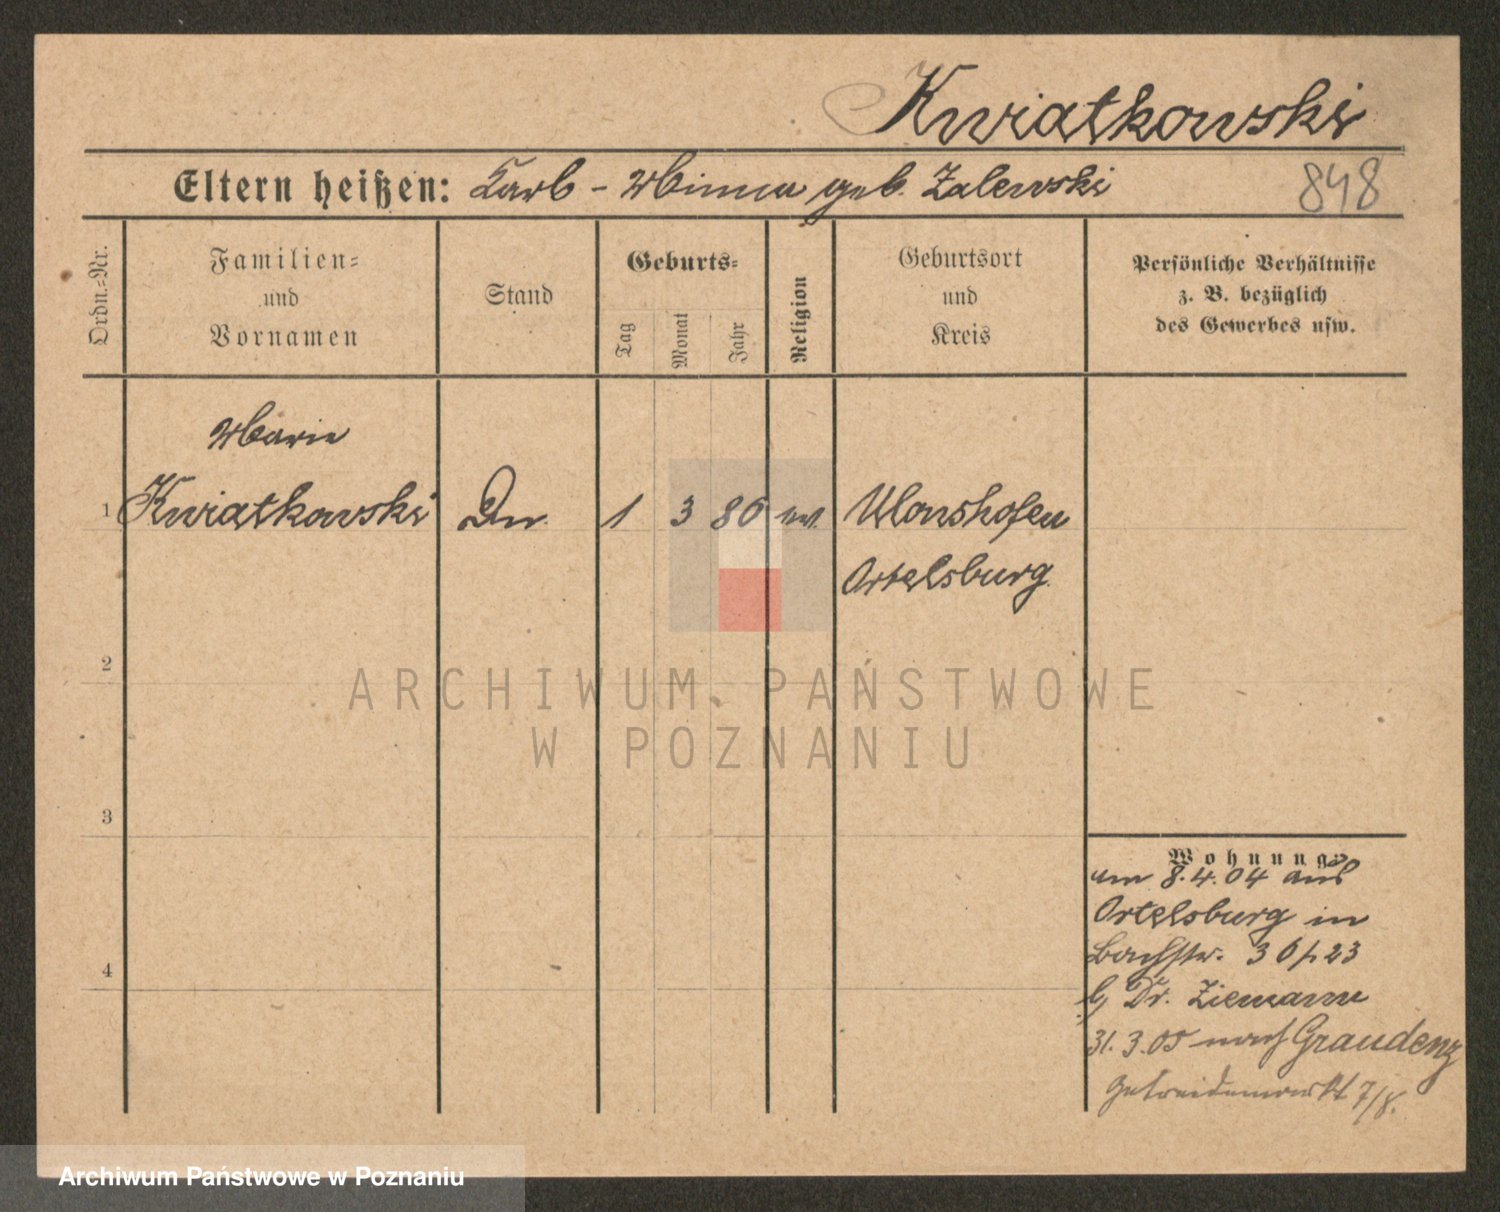 Kwiatkowski
Eltern heißen: Karl - Minna geb. Zalewski
848
Ordn.-Nr.
Familien-
und
Vornamen
Stand
Geburts-
Tag
Monat
Jahr
Religion
Geburtsort
und
Kreis
Persönliche Verhältnisse
z. B. bezüglich
des Gewerbes usw.
Marie
1 Kwiatkowski Dn. 1 3 86 ev. Ulonshofen
Ortelsburg.
2
ARCHIWUM PAŃSTWOWE
W POZNANIU
3
Wohnung
am 8.4.04 aus
Ortelsburg in
Bachstr. 36/23
b/ Dr. Ziemann
4
31.3.05 nach Graudenz
Getreidemarkt 7/8.
Archiwum Państwowe w Poznaniu